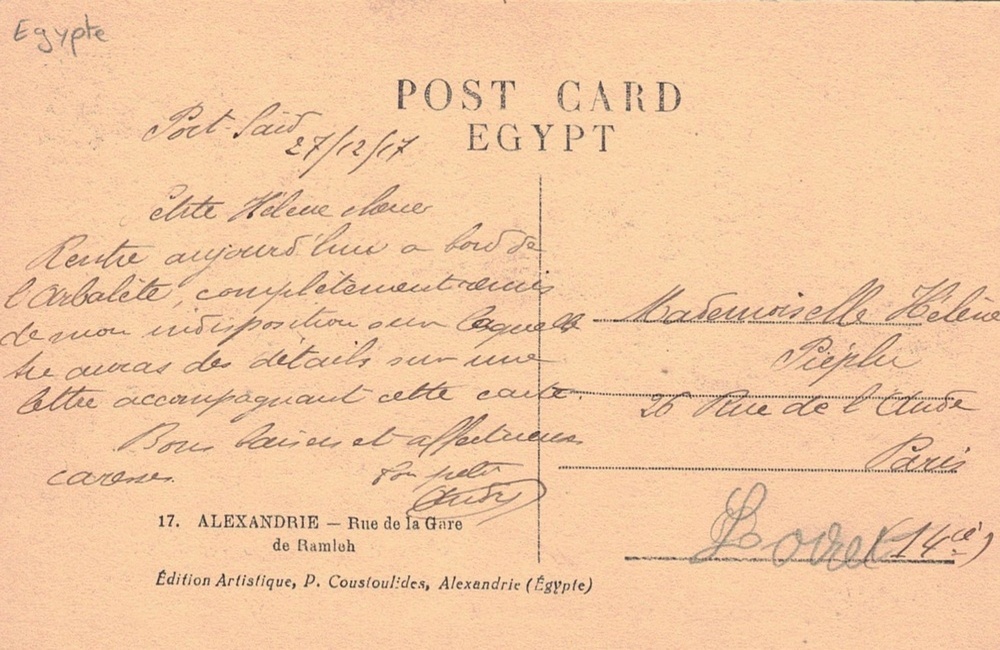 Egypte
POST CARD
EGYPT
Port-Saïd
27/12/17
Hélène chérie
Rentré aujourd'hui à bord de
l'Arbalète, complètement remis
de mon indisposition sur laquelle
tu auras des détails sur une
lettre accompagnant cette carte.
Bons baisers et affectueuses
caresses. Ton petit
André
17. ALEXANDRIE — Rue de la Gare
de Ramleh
Édition Artistique, P. Coustoulides, Alexandrie (Égypte)
Mademoiselle Hélène
Piéplu
26 Rue de l'Aude
Paris
Loiret (14e)